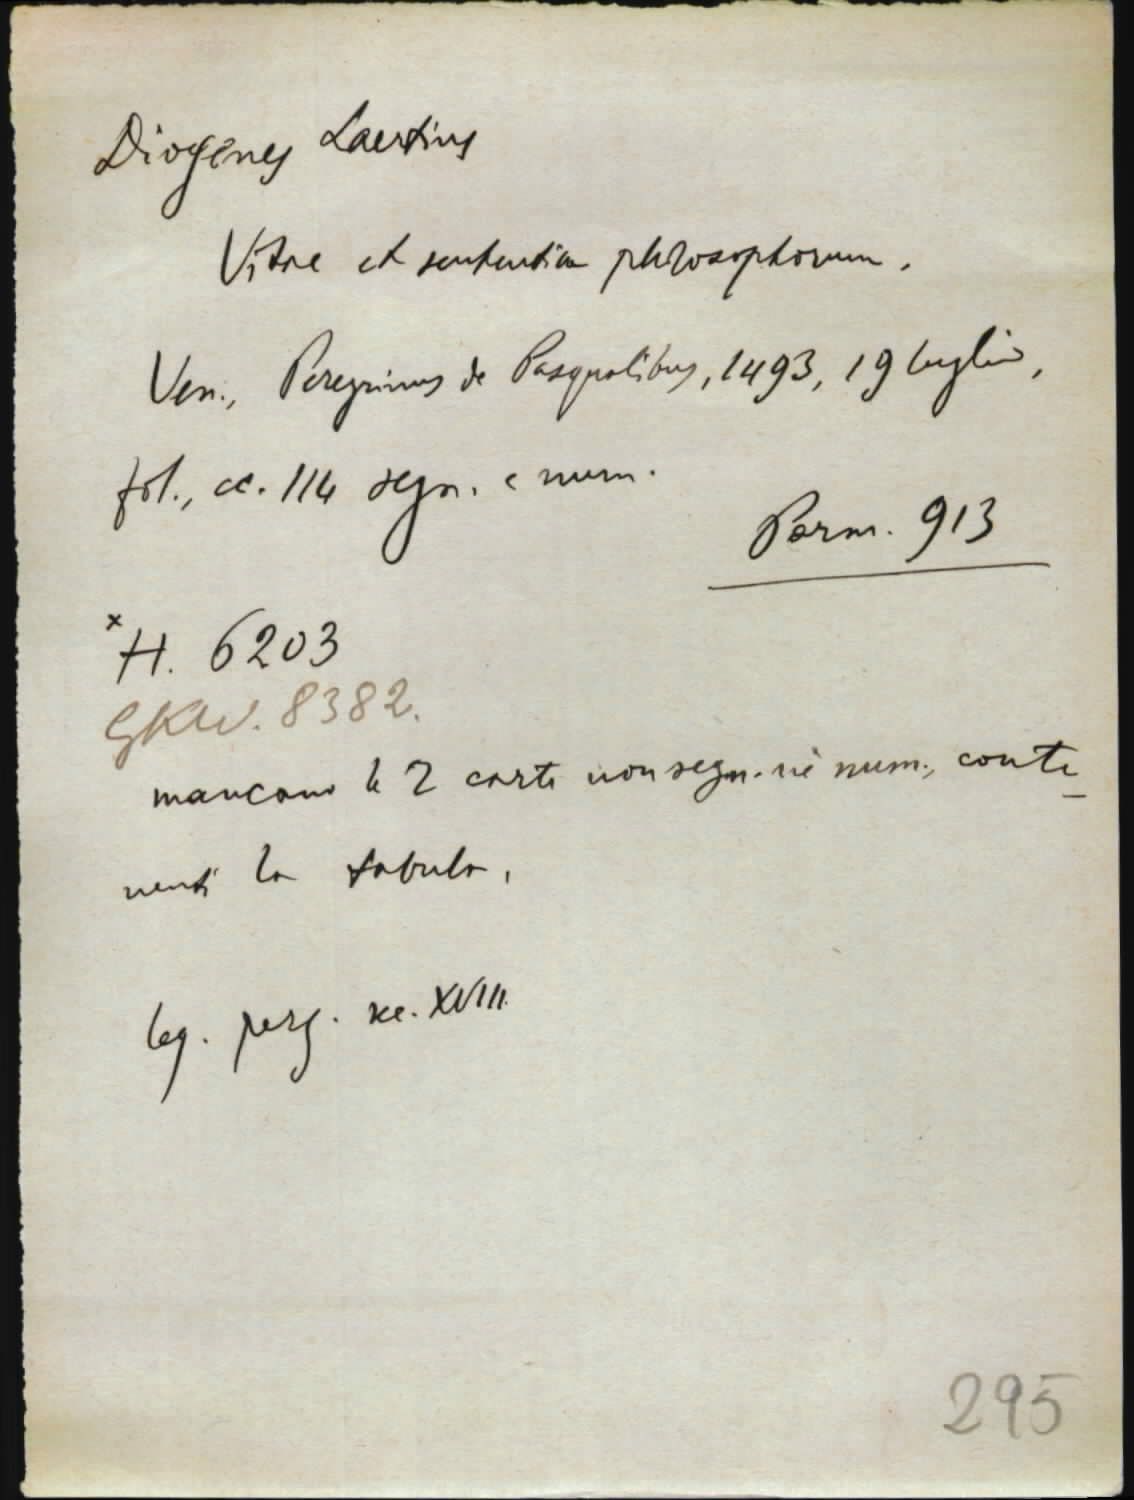 Diogenes Laertius
Vitae et sententiae philosophorum.
Ven., Peregrinus de Pasqualibus, 1493, 19 luglio,
fol., cc. 114 segn. e num.
Parm. 913
x H. 6203
GKW. 8382.
mancano le 2 carte non segn. nè num., conte_
nenti la tabula.
leg. perg. sec. XVIII.
295